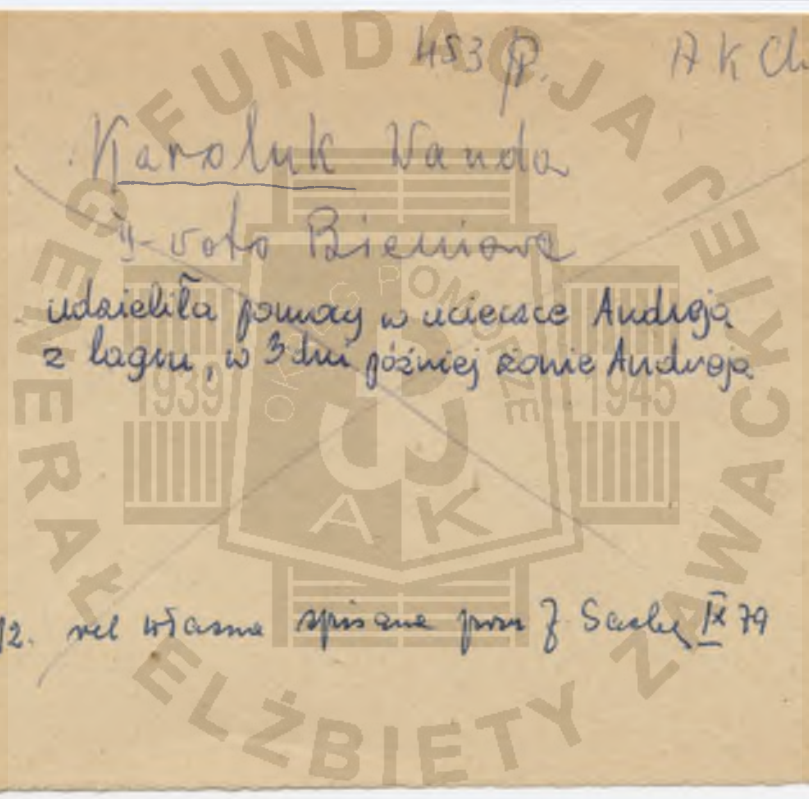 483 P. A K Ch
Karoluk Wanda
II-voto Bieniowa
udzieliła pomocy w ucieczce Andrzeja
z łagru, w 3 dni później żonie Andrzeja
2. rel własna spisana przez Z. IX 79
FUNDACJA GENERAŁ ELŻBIETY ZAWACKIEJ
OKRĘG POMORZE
1939 1945
A K